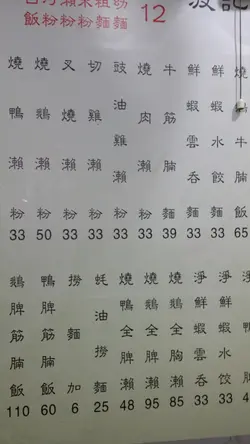 白飯
河粉
瀨粉
米粉
粗麵
幼麵
12
記
燒鴨瀨粉 33
燒鵝瀨粉 50
叉燒瀨粉 33
切雞瀨粉 33
豉油雞瀨粉 33
燒肉瀨粉 33
牛筋腩麵 39
鮮蝦雲吞麵 33
鮮蝦水餃麵 33
燒腩飯 65
鵝脾筋腩飯 110
鴨脾筋腩飯 60
撈麵加 6
蚝油撈麵 25
燒鴨全脾瀨 48
燒鵝全脾瀨 95
燒鵝脾胸瀨 85
淨鮮蝦雲吞 33
淨鮮蝦水餃 33
淨